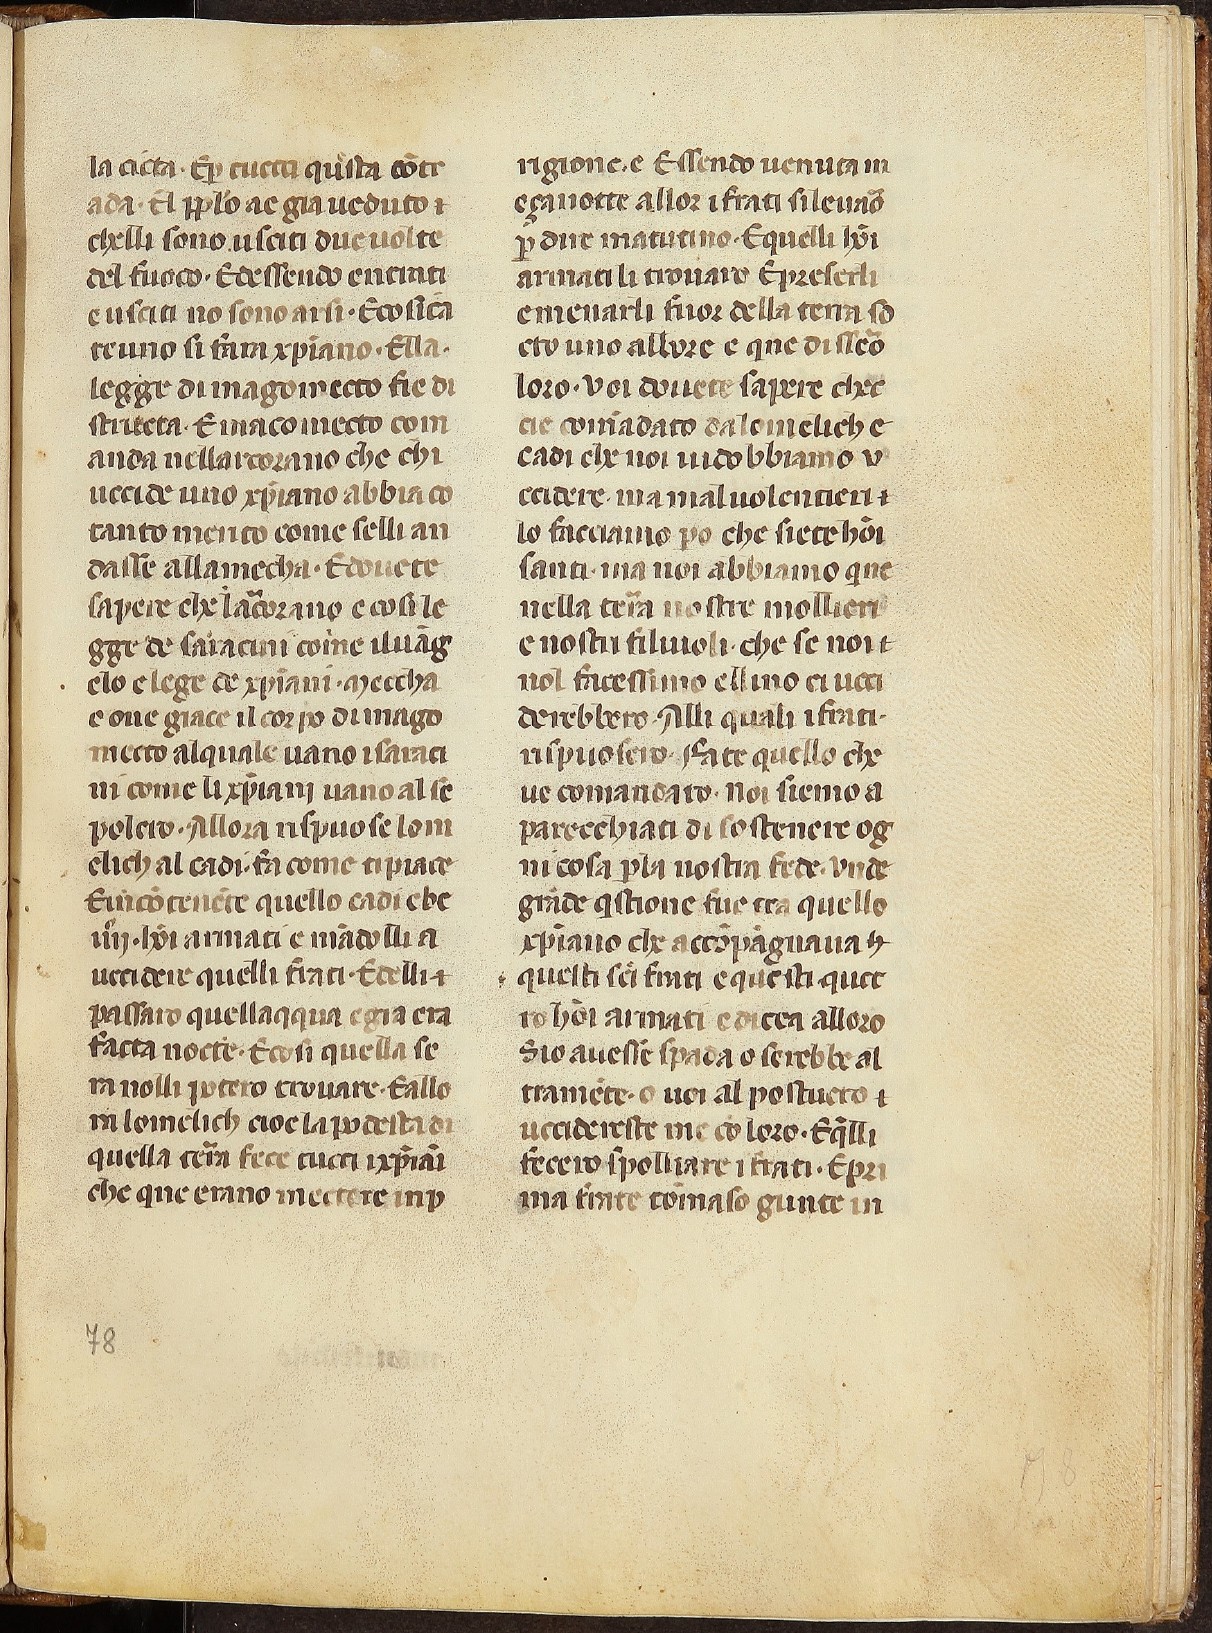 la citta· Ep̱ tucta q̄sta cōtr
ada· El pp̱lo ae gia ueduto ⁊
chelli sono usciti due uolte
del fuoco· Edessendo entrati
e usciti no sono arsi· Ecosi ca
te uno si fara xp̄iano· Ella·
legge di magometto fie di
strutta· E macometto com
anda nellarcorano che chi
uccide uno xp̄iano abbia co
tanto merito come selli an
dasse allamecha· Edouete
sapere che lacorano e cosi le
gge de saracini come iluāg
elo e lege de xp̄iani· Meccha
e oue giace il corpo di mago
metto alquale uano isaraci
ni come li xp̄iani uano al se
polcro· Allora rispuose lom
elich al cadi· fa come ti piace
Eincōtenēte quello cadi ebe
iiij· hōi armati e mādolli a
uccidere quelli frati· Edelli ⁊
passaro quellaqqua e gia era
facta nocte· Ecosi quella se
ra nolli potero trouare· Eallo
ra lomelich cioe la podesta di
quella terra fece tucti i xp̄iāi
che que erano mettere in p
rigione· e Essendo uenuta m
eçanotte allor i frati si leuaō
p̱ dire matutino· Equelli hōi
armati li trouaro Epreserli
e menarli fuor della terra so
cto uno albore e que dissēo
loro· Voi douete sapere chee
cie comādato dalomelich e
cadi che noi uidobbiamo u
ccidere· ma maluolentieri ⁊
lo facciamo po che siete hōi
santi· ma noi abbiamo que
nella terra nostre mollieri
e nostri filiuoli· che se noi ⁊
nol facessimo ellino ci ucci
derebbero· Alli quali i frati·
rispuosero· Fate quello che
ue comandato· noi siemo a
parecchiati di sostenere og
ni cosa p̱ la nostra fede· Vnde
grāde q̄stione fue tra quello
xp̄iano che accōpāgnaua
questi sc̄i frati e questi quat
ro hōi armati e dicea alloro
Sio auesse spada o serebbe al
tramēte· o uoi al postucto ⁊
uccidereste me cō loro· Eq̄lli
fecero spolliare i frati· Epri
ma frate tōmaso giunte in
78
78